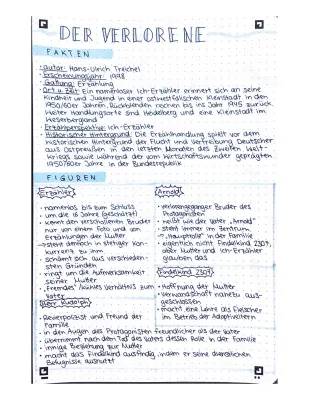 DER VERLORENE
FAKTEN
· Autor: Hans-Ulrich Treichel
· Erscheinungsjahr: 1998
· Gattung: Erzählung
· Ort u. Zeit: Ein namenloser Ich-Erzähler erinnert sich an seine
Kindheit und Jugend in einer ostwestfälischen Kleinstadt in den
1950/60er Jahren. Rückblenden reichen bis ins Jahr 1945 zurück.
Weiter Handlungsorte sind Heidelberg und eine Kleinstadt im
Weserbergland
· Erzählperspektive: Ich-Erzähler
· Historischer Hintergrund: Die Erzählhandlung spielt vor dem
historischen Hintergrund der Flucht und Vertreibung Deutscher
aus Ostpreußen in den letzten Monaten des Zweiten Welt-
kriegs sowie während der vom Wirtschaftswunder geprägten
1950/60er Jahre in der Bundesrepublik
FIGUREN
Erzähler
- namenlos bis zum Schluss
- um die 16 Jahre (geschätzt)
- kennt den verschollenen Bruder
nur von einem Foto und von
Erzählungen der Mutter
→ steht dennoch in stetiger Kon-
kurrenz zu ihm
- schämt sich aus verschiede-
sten Gründen
- ringt um die Aufmerksamkeit
seiner Mutter
- "fremdes" kühles Verhältnis zum
Vater
Herr Rudolph
- Revierpolizist und Freund der
Familie
- in den Augen des Protagonisten freundlicher als der Vater
- übernimmt nach dem Tod des Vaters dessen Rolle in der Familie
- innige Beziehung zur Mutter
- macht das Findelkind ausfindig, indem er seine dienstlichen
Befugnisse ausnutzt
Arnold
- verlorengegangener Bruder des
Protagonisten
- heißt wie der Vater "Arnold"
- steht immer im Zentrum
→ "Hauptrolle" in der Familie
- eigentlich nicht Findelkind 2307,
aber Mutter und Ich-Erzähler
glauben das
Findelkind 2307
- Hoffnung der Mutter
- Verwandschaft nahezu aus-
geschlossen
- macht eine Lehre als Fleischer
im Betrieb der Adoptiveltern